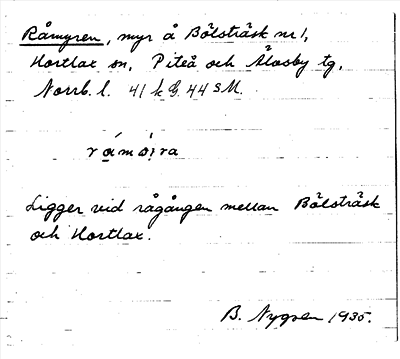 Råmyren, myr å Bölsträsk nr 1,
Hortlax sn, Piteå och Älvsby tg,
Norrb. l. 41 k G. 44 s M.
Ligger vid rågången mellan Bölsträsk
och Hortlax.
B. Nygren 1935.